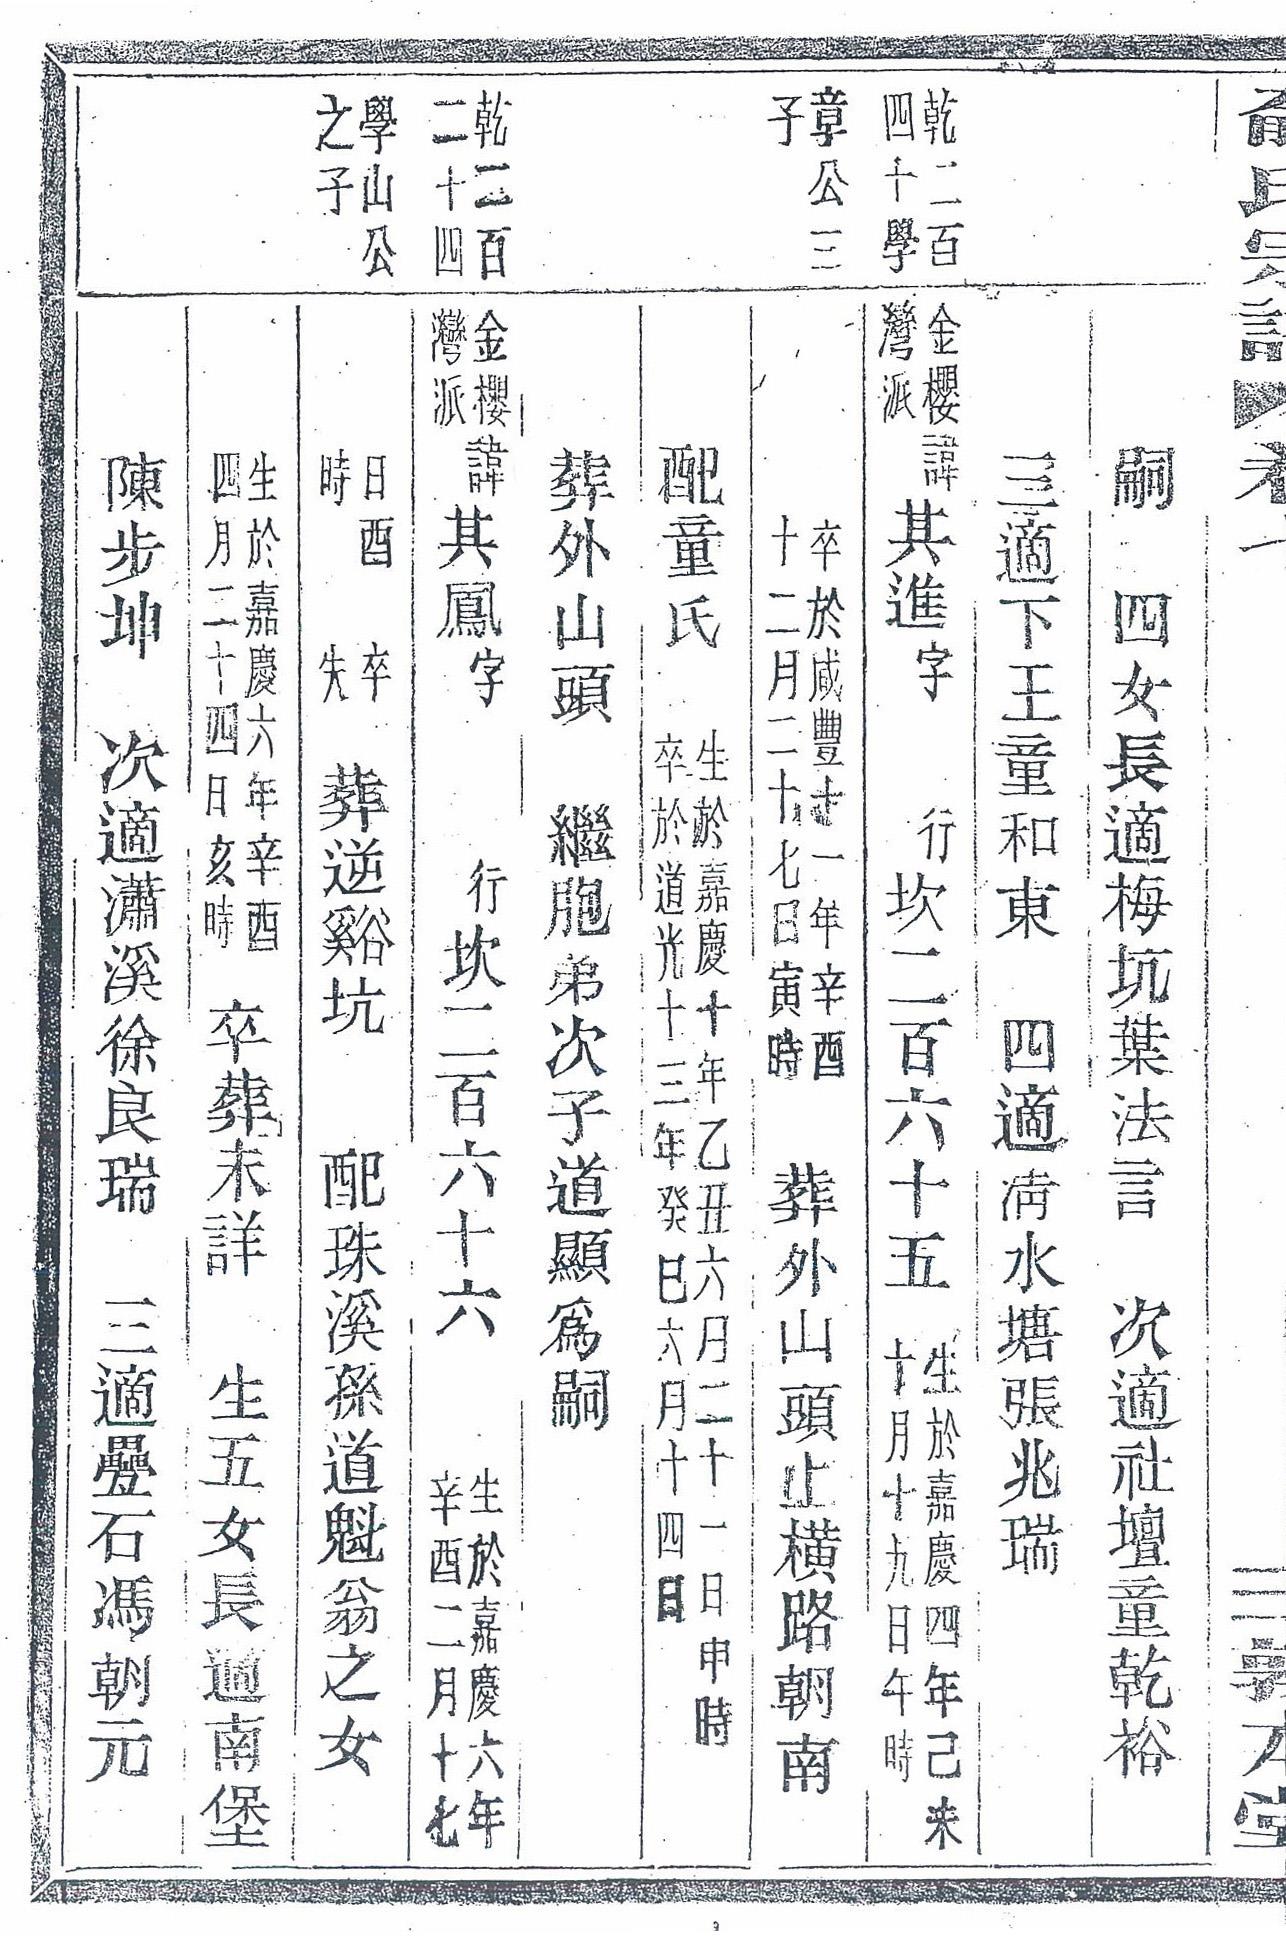 嗣　四女長適梅坑葉法言　次適社壇童乾裕
三適下王童和東　四適淸水塘張兆瑞
乾二百
四十學
金櫻
灣派
諱其進字　行坎二百六十五
生於嘉慶四年己未
十月十九日午時
章公三
子
卒於咸豐十一年辛酉
十二月二十七日寅時
葬外山頭止橫路朝南
配童氏
生於嘉慶十年乙丑六月二十一日申時
卒於道光十三年癸巳六月十四日
葬外山頭　繼胞弟次子道顯爲嗣
乾二百
二十四
金櫻
灣派
諱其鳳字　行坎二百六十六
生於嘉慶六年
辛酉二月十七
學山公
之子
日酉　卒
時　失
葬逆谿坑　配珠溪孫道魁翁之女
生於嘉慶六年辛酉
四月二十四日亥時
卒葬未詳　生五女長適南堡
陳步坤　次適瀟溪徐良瑞　三適疊石馮朝元